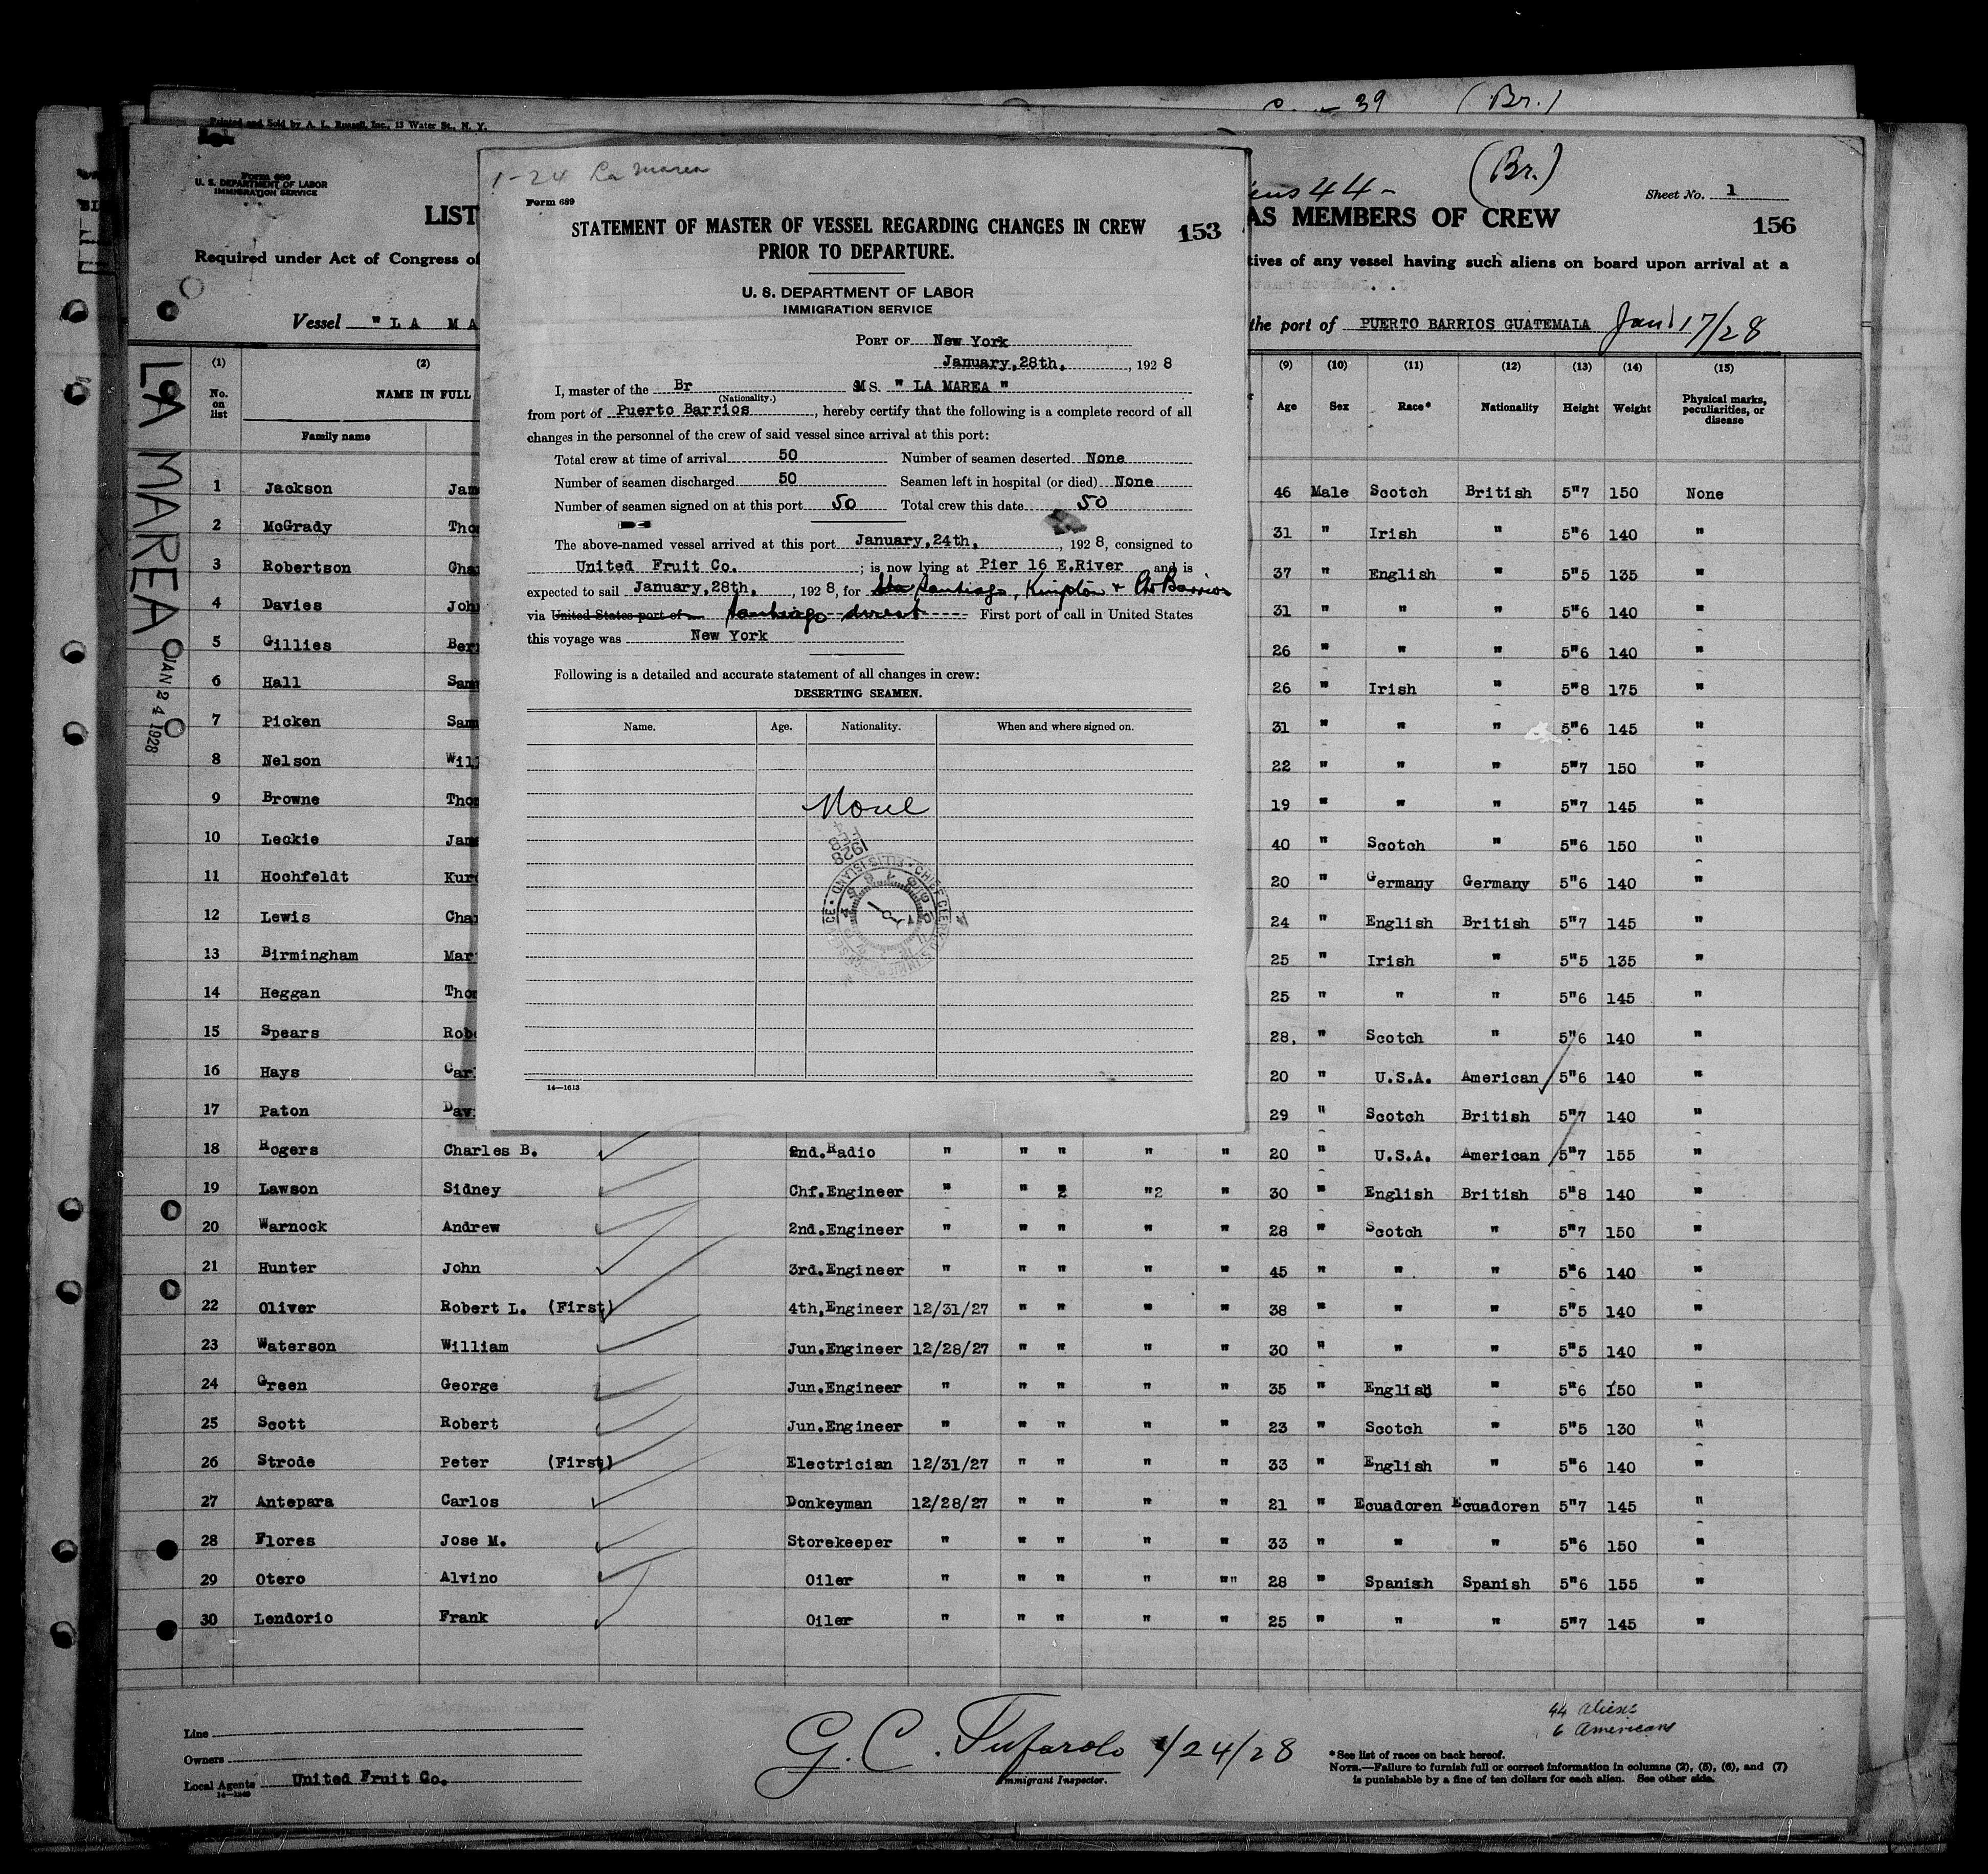 39 (Br.)
Printed and Sold by A. L. Russell, Inc., 13 Water St., N. Y.
Form 680
U. S. DEPARTMENT OF LABOR
IMMIGRATION SERVICE
44 - (Br.)
Sheet No. 1
LIST
AS MEMBERS OF CREW
156
Required under Act of Congress of
tives of any vessel having such aliens on board upon arrival at a
Vessel "LA MA
the port of PUERTO BARRIOS GUATEMALA Jan 17/28
LA MAREA
JAN 24 1928
1-24 La Marea
Form 689
STATEMENT OF MASTER OF VESSEL REGARDING CHANGES IN CREW
PRIOR TO DEPARTURE.
153
U. S. DEPARTMENT OF LABOR
IMMIGRATION SERVICE
PORT OF New York
January, 28th, , 192 8
I, master of the Br MS. " LA MAREA "
(Nationality.)
from port of Puerto Barrios , hereby certify that the following is a complete record of all
changes in the personnel of the crew of said vessel since arrival at this port:
Total crew at time of arrival 50 Number of seamen deserted None
Number of seamen discharged 50 Seamen left in hospital (or died) None
Number of seamen signed on at this port 50 Total crew this date 50
The above-named vessel arrived at this port January, 24th, , 192 8, consigned to
United Fruit Co. ; is now lying at Pier 16 E.River and is
expected to sail January, 28th, , 192 8, for Santiago, Kingston + Pto Barrios
via United States port of Santiago direct First port of call in United States
this voyage was New York
Following is a detailed and accurate statement of all changes in crew:
DESERTING SEAMEN.
Name. Age. Nationality. When and where signed on.
None
1928
14—1613
(1) (2) (9) (10) (11) (12) (13) (14) (15)
No. on list NAME IN FULL Age Sex Race* Nationality Height Weight Physical marks, peculiarities, or disease
Family name
1 Jackson Jam 46 Male Scotch British 5"7 150 None
2 McGrady Tho 31 " Irish " 5"6 140 "
3 Robertson Cha 37 " English " 5"5 135 "
4 Davies Joh 31 " " " 5"6 140 "
5 Gillies Ber 26 " " " 5"6 140 "
6 Hall Sam 26 " Irish " 5"8 175 "
7 Picken Sam 31 " " " 5"6 145 "
8 Nelson Wil 22 " " " 5"7 150 "
9 Browne Tho 19 " " " 5"7 145 "
10 Leckie Jam 40 " Scotch " 5"6 150 "
11 Hochfeldt Kur 20 " Germany Germany 5"6 140 "
12 Lewis Cha 24 " English British 5"7 145 "
13 Birmingham Mar 25 " Irish " 5"5 135 "
14 Heggan Tho 25 " " " 5"6 145 "
15 Spears Rob 28, " Scotch " 5"6 140 "
16 Hays Car 20 " U.S.A. American 5"6 140 "
17 Paton Daw 29 " Scotch British 5"7 140 "
18 Rogers Charles B. 2nd.Radio " " " " " 20 " U.S.A. American 5"7 155 "
19 Lawson Sidney Chf.Engineer " " 2 "2 " 30 " English British 5"8 140 "
20 Warnock Andrew 2nd.Engineer " " " " " 28 " Scotch " 5"7 150 "
21 Hunter John 3rd.Engineer " " " " " 45 " " " 5"6 140 "
22 Oliver Robert L. (First) 4th,Engineer 12/31/27 " " " " 38 " " " 5"5 140 "
23 Waterson William Jun.Engineer 12/28/27 " " " " 30 " " " 5"5 140 "
24 Green George Jun.Engineer " " " " " 35 " English " 5"6 150 "
25 Scott Robert Jun.Engineer " " " " " 23 " Scotch " 5"5 130 "
26 Strode Peter (First) Electrician 12/31/27 " " " " 33 " English " 5"6 140 "
27 Antepara Carlos Donkeyman 12/28/27 " " " " 21 " Ecuadoren Ecuadoren 5"7 145 "
28 Flores Jose M. Storekeeper " " " " " 33 " " " 5"6 150 "
29 Otero Alvino Oiler " " " " "" 28 " Spanish Spanish 5"6 155 "
30 Lendorio Frank Oiler " " " " " 25 " " " 5"7 145 "
44 aliens
6 Americans
Line
Owners
Local Agents United Fruit Co.
14—1240
G. C. Tufarolo 1/24/28
Immigrant Inspector.
*See list of races on back hereof.
NOTE.—Failure to furnish full or correct information in columns (2), (5), (6), and (7)
is punishable by a fine of ten dollars for each alien. See other side.